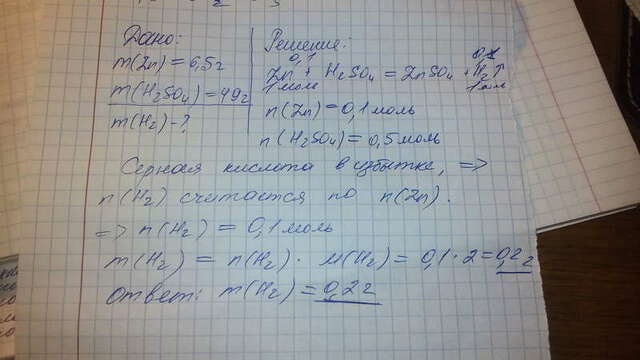 Дано:
m(Zn) = 6,5г
m(H₂SO₄) = 49г
m(H₂) - ?
Решение:
0,1 0,1
Zn + H₂SO₄ = ZnSO₄ + H₂↑
1моль 1моль
n(Zn) = 0,1 моль
n(H₂SO₄) = 0,5 моль
Серная кислота в избытке, =>
n(H₂) считается по n(Zn).
=> n(H₂) = 0,1 моль
m(H₂) = n(H₂) · M(H₂) = 0,1 · 2 = 0,2г
Ответ: m(H₂) = 0,2г